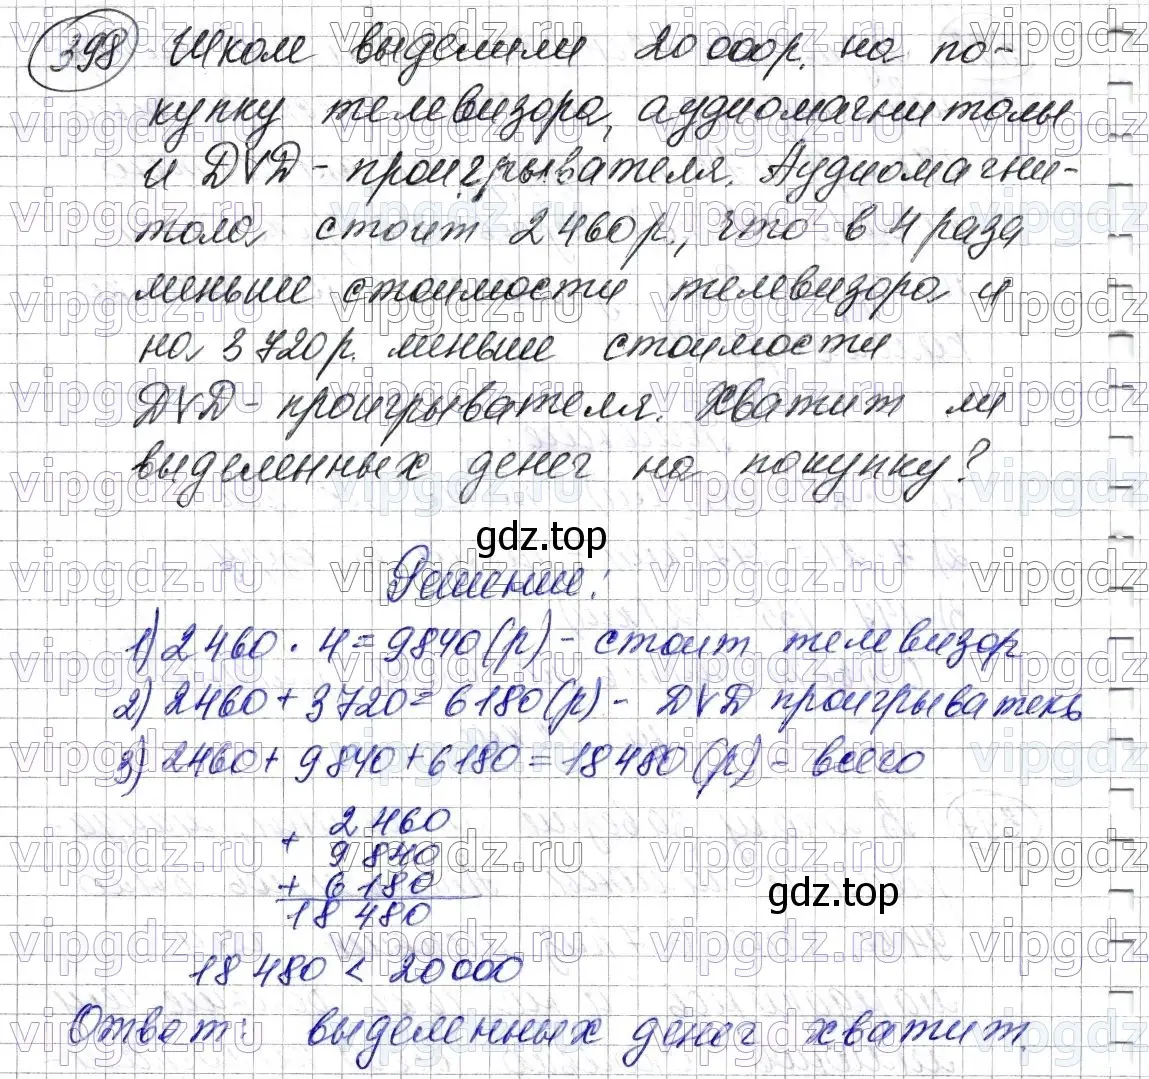 398 Школе выделили 20 000р. на по-
купку телевизора, аудиомагнитолы
и DVD-проигрывателя. Аудиомагни-
тола стоит 2460р., что в 4 раза
меньше стоимости телевизора и
на 3720р. меньше стоимости
DVD-проигрывателя. Хватит ли
выделенных денег на покупку?
gdz.top
Решение:
1) 2460 · 4 = 9840(р) - стоит телевизор
2) 2460 + 3720 = 6180(р) - DVD проигрыватель
3) 2460 + 9840 + 6180 = 18480 (р) - всего
2460
+ 9840
+ 6180
18 480
gdz.top
18 480 < 20 000
Ответ: выделенных денег хватит.
vipgdz.ru